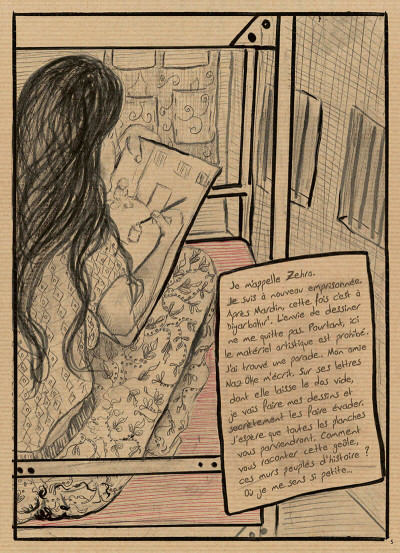 Je m'appelle Zehra.
Je suis à nouveau emprisonnée.
Après Mardin, cette fois c'est à
Diyarbakır. L'envie de dessiner
ne me quitte pas. Pourtant, ici
le matériel artistique est prohibé.
J'ai trouvé une parade. Mon amie
Naz Oke m'écrit. Sur ses lettres
dont elle laisse le dos vide,
je vais faire mes dessins et
secrètement les faire évader.
J'espère que toutes les planches
vous parviendront. Comment
vous raconter cette geôle,
ces murs peuplés d'histoire ?
Où je me sens si petite...
5